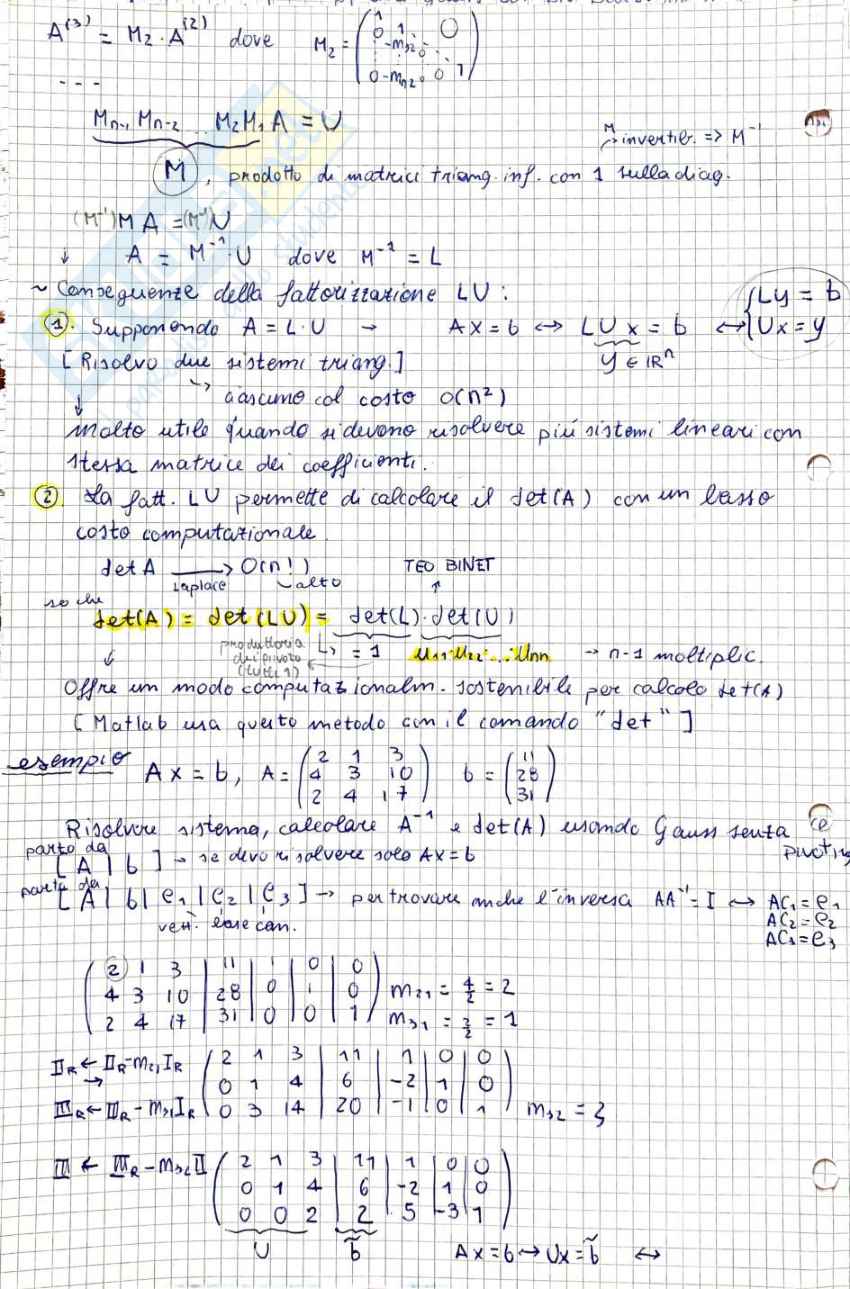 A⁽³⁾ = M₂ · A⁽²⁾ dove M₂ = ( 1 0 1 O -m₃₂ 0 0 -mₙ₂ 0 0 1 )
- - -
Mₙ₋₁ Mₙ₋₂ ... M₂ M₁ A = U
M invertib. => M⁻¹
M , prodotto di matrici triang. inf. con 1 sulla diag.
(M⁻¹) M A = (M⁻¹) U
↓ A = M⁻¹ · U dove M⁻¹ = L
~ Conseguenze della fattorizzazione LU :
①. Supponendo A = L·U → Ax = b ↔ LUx = b ↔ { Ly = b
Ux = y
[ Risolvo due sistemi triang. ] y ∈ ℝⁿ
↳ ciascuno col costo O(n²)
↓
molto utile quando si devono risolvere più sistemi lineari con
stessa matrice dei coefficienti.
②. La fatt. LU permette di calcolare il det(A) con un basso
costo computazionale.
det A → O(n!) TEO BINET
Laplace alto ↑
so che
det(A) = det(LU) = det(L) · det(U)
produttoria dei pivot (tutti 1) ↳ = 1 u₁₁·u₂₂· ... uₙₙ → n-1 moltiplic.
↓
Offre un modo computazionalm. sostenibile per calcolo det(A)
[ Matlab usa questo metodo con il comando "det" ]
esempio Ax = b, A = ( 2 1 3
4 3 10
2 4 17 ) b = ( 11
28
31 )
Risolvere sistema, calcolare A⁻¹ e det(A) usando Gauss senza
pivoting
parto da
[ A | b ] → se devo risolvere solo Ax = b
parto da
[ A | b | e₁ | e₂ | e₃ ] → per trovare anche l'inversa AA⁻¹ = I ↔ AC₁ = e₁
AC₂ = e₂
AC₃ = e₃
vett. base can.
( 2 1 3 | 11 | 1 | 0 | 0
4 3 10 | 28 | 0 | 1 | 0
2 4 17 | 31 | 0 | 0 | 1 )
m₂₁ = 4/2 = 2
m₃₁ = 2/2 = 1
II_R ← II_R - m₂₁ I_R
→
III_R ← III_R - m₃₁ I_R
( 2 1 3 | 11 | 1 | 0 | 0
0 1 4 | 6 | -2 | 1 | 0
0 3 14 | 20 | -1 | 0 | 1 ) m₃₂ = 3
III ← III_R - m₃₂ II
( 2 1 3 | 11 | 1 | 0 | 0
0 1 4 | 6 | -2 | 1 | 0
0 0 2 | 2 | 5 | -3 | 1 )
U b̃ Ax = b → Ux = b̃ ↔